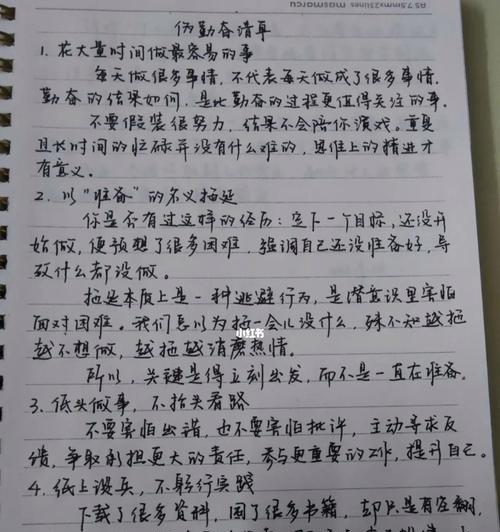 A5 7.5mmx25lines maomaorcu
伪勤奋清单
1. 花大量时间做最容易的事
每天做很多事情，不代表每天做成了很多事情，
勤奋的结果如何，是比勤奋的过程更值得关注的事。
不要假装很努力，结果不会陪你演戏。重复
且长时间的忙碌并没有什么难的，思维上的精进才
有意义。
2. 以"准备"的名义拖延
你是否有过这样的经历：定下一个目标，还没开
始做，便预想了很多困难，强调自己还没准备好，导
致什么都没做。
拖延本质上是一种逃避行为，是潜意识里害怕
面对困难。我们总以为拖一会儿没什么，殊不知越拖
越不想做，越拖越消磨热情。
小红书
所以，关键是得立刻出发，而不是一直在准备。
3. 低头做事，不抬头看路
不要害怕出错，也不要害怕批评，主动寻求反
馈，争取承担更大的责任，参与更重要的工作，提升自己。
4. 纸上谈兵，不躬行实践
下载了很多资料，囤了很多书籍，却只是在空翻，